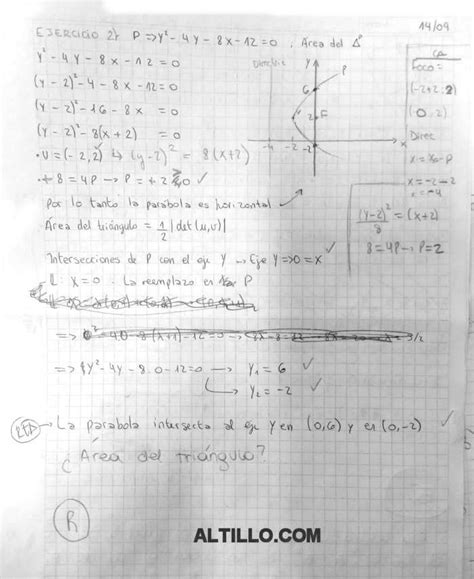 14/09
EJERCICIO 2) P => y² - 4y - 8x - 12 = 0 ; Área del Δ
y² - 4y - 8x - 12 = 0
(y - 2)² - 4 - 8x - 12 = 0
(y - 2)² - 16 - 8x = 0
(y - 2)² - 8(x + 2) = 0
• V = (-2, 2) ↳ (y - 2)² = 8(x + 2)
• + 8 = 4P → P = + 2 > 0 ✓
Por lo tanto la parábola es horizontal
Área del triángulo = 1/2 |det(u, v)|
Intersecciones de P con el eje Y → Eje Y => 0 = x ✓
X = 0 . La reemplazo en P
=> y² - 4y - 8.0 - 12 = 0 → y₁ = 6 ✓
↳ y₂ = -2 ✓
RTA → La parábola intersecta al eje Y en (0,6) y en (0,-2) ✓
¿Área del triángulo?
R
Directriz
y
P
6
2
F
x
-4
-2
-2
CA
Foco =
(-2+2; 2)
(0, 2)
Direc
x = x₀ - p
x = -2 - 2
x = -4
(y-2)²/8 = (x+2)
8 = 4P → P = 2
ALTILLO.COM